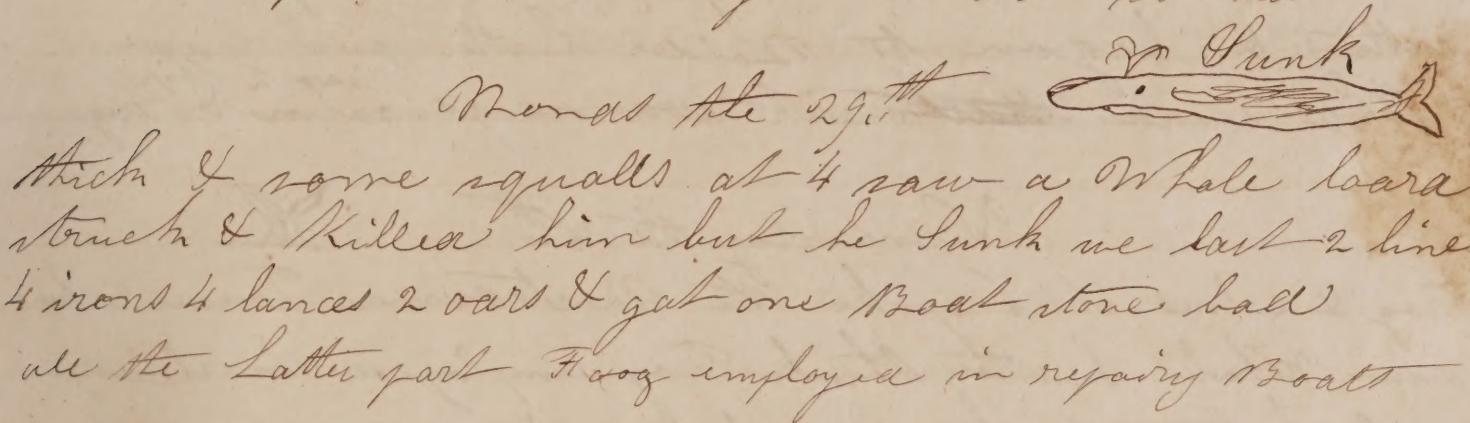 Sunk
Monds the 29th
thick & some squalls at 4 saw a Whale loard
struck & Killed him but he Sunk we last 2 line
4 irons 4 lances 2 oars & got one Boat stove bad
ale the Latter part Foog employed in repairy Boats